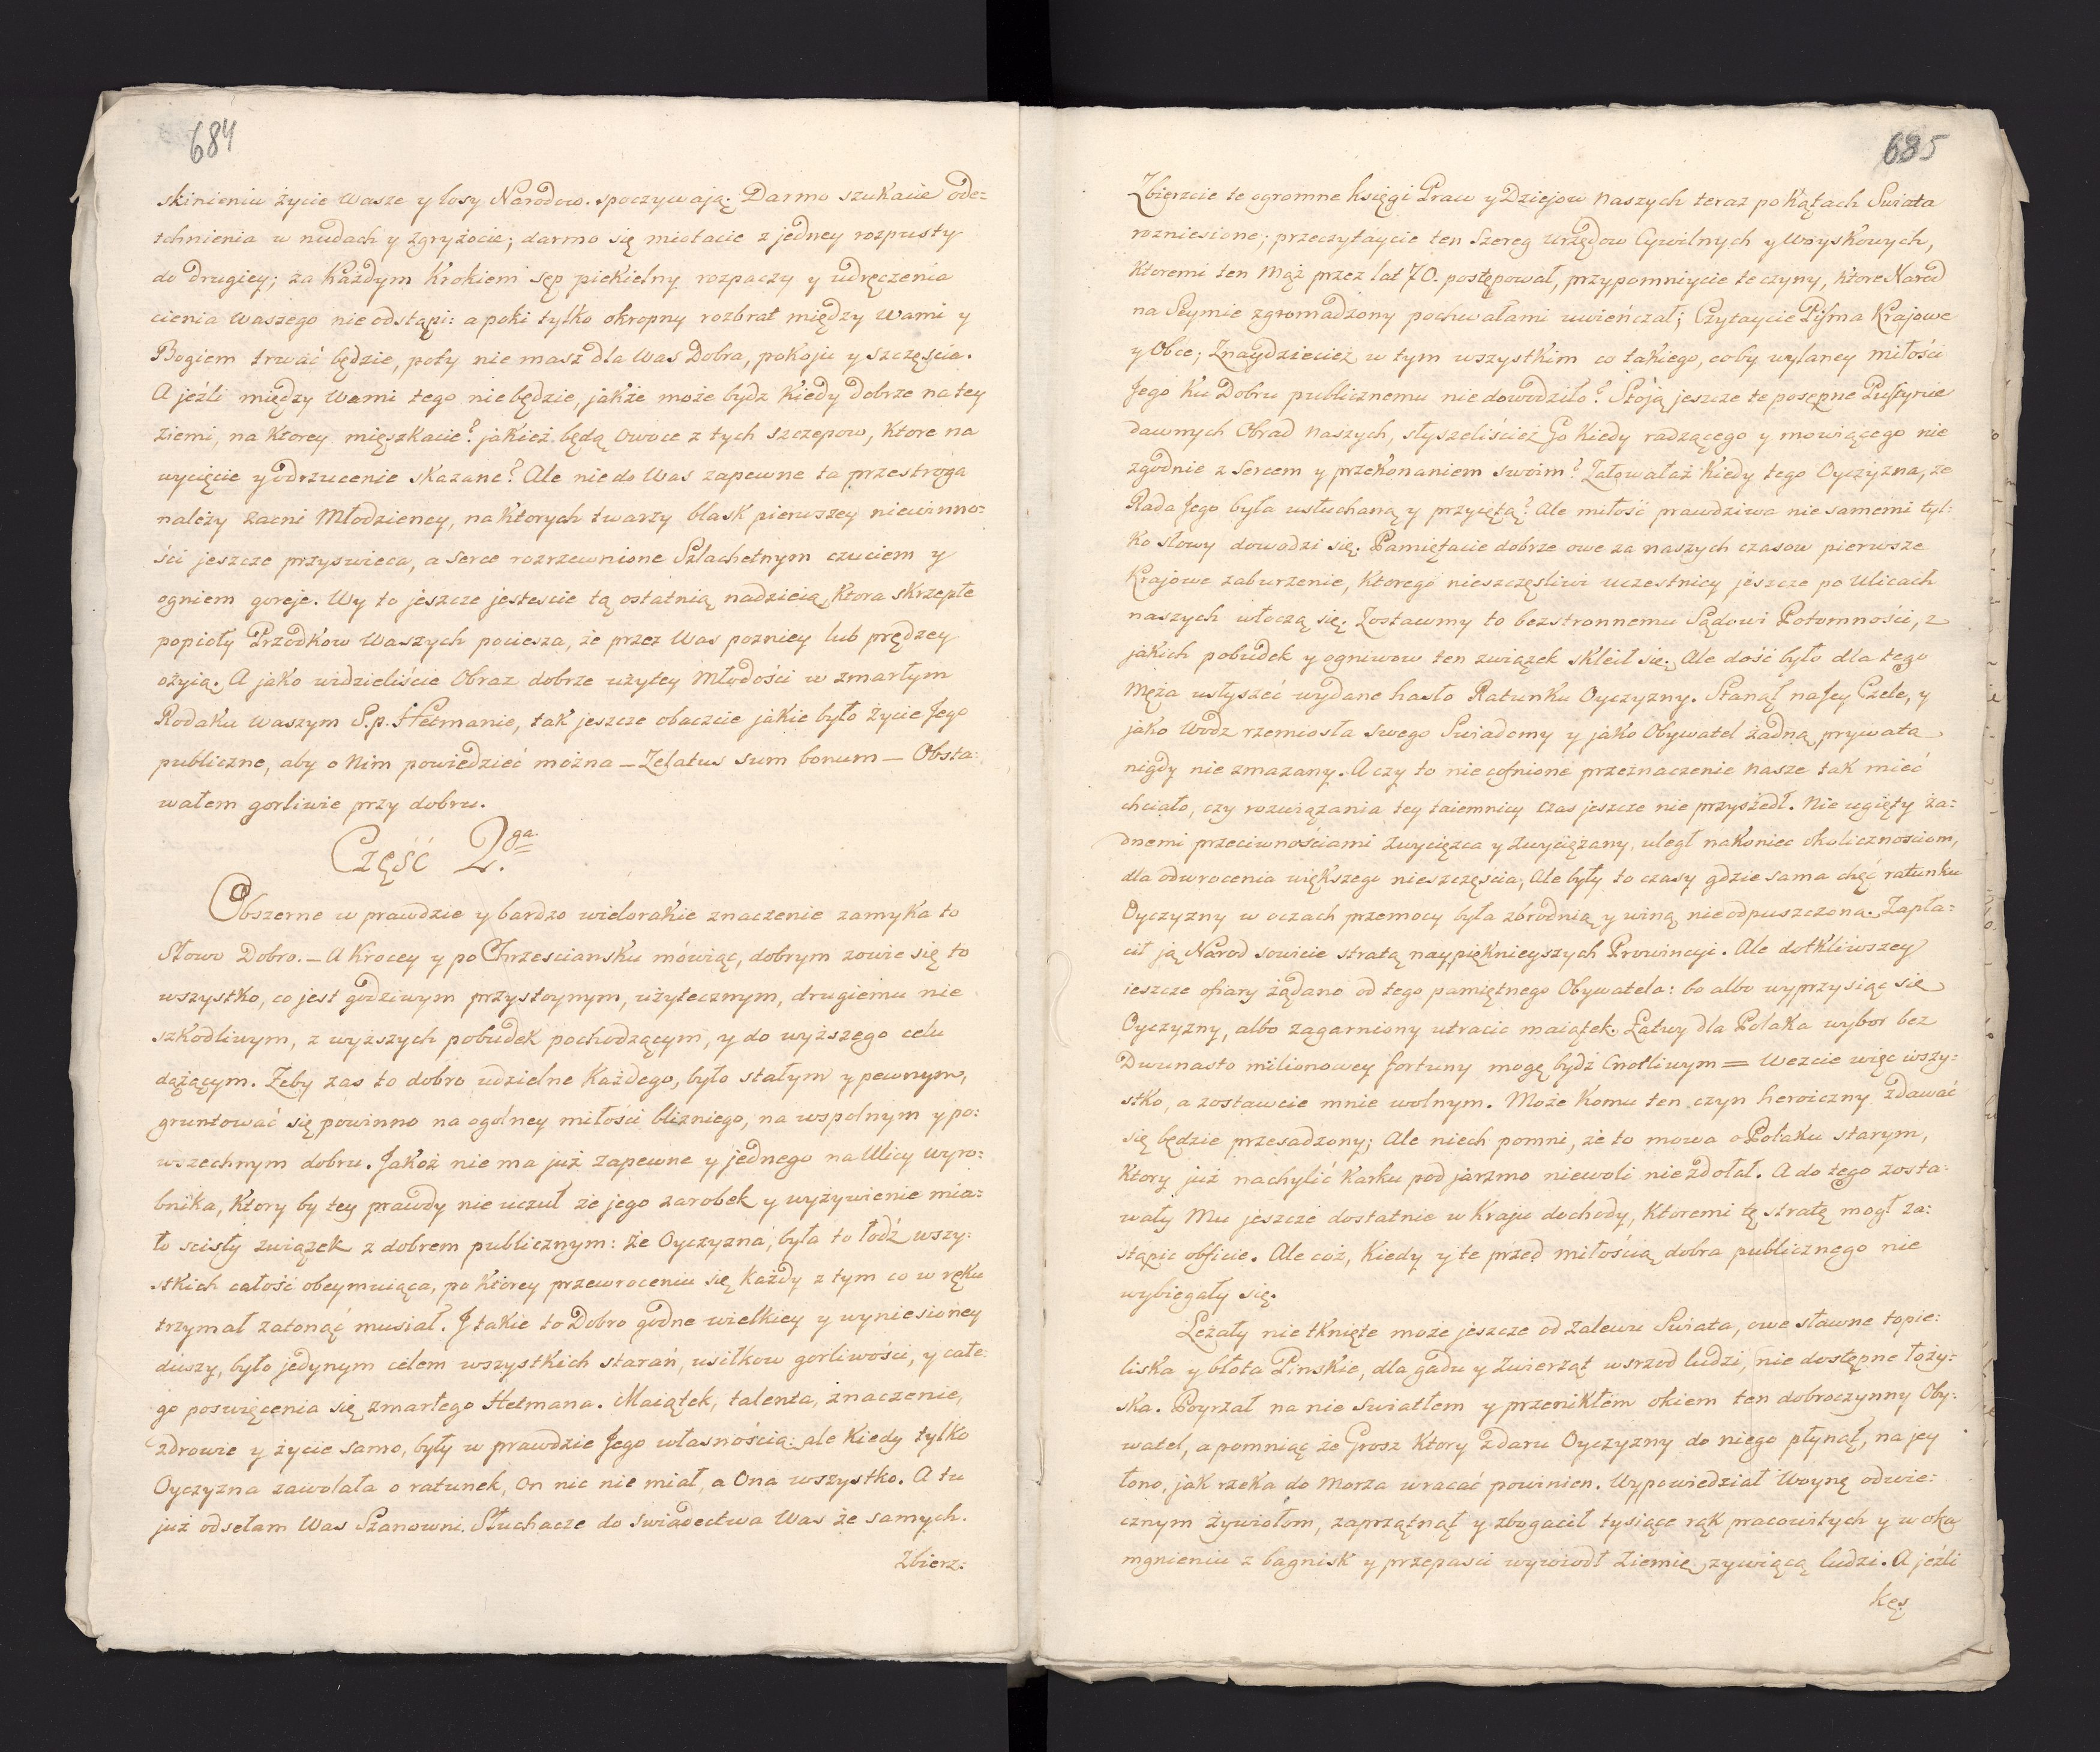 684
skinieniu życie Wasze y losy Narodow. spoczywają. Darmo szukacie ode=
tchnienia w nudach y zgryżocie; darmo się miotacie z jedney rozpusty
do drugiey; za Każdym Krokiem sęp piekielny rozpaczy y udręczenia
cienia Waszego nie odstąpi: a poki tylko okropny rozbrat między Wami y
Bogiem trwać będzie, poty nie masz dla Was Dobra, pokoju y szczęścia.
A jeźli między Wami tego nie będzie, jakże może bydz Kiedy dobrze na tey
ziemi, na Ktorey mięszkacie? jakież będą Owoce z tych szczepow, Ktore na
wycięcie y odrzucenie skazane? Ale nie do Was zapewne ta przestroga
należy zacni Młodzieńcy, na Ktorych twarzy blask pierwszey niewinno=
ści jeszcze przyswieca, a Serce rozrzewnione Szlachetnym czuciem y
ogniem goreje. Wy to jeszcze jestescie tą ostatnią nadzieią, Ktora skrzepłe
popioły Przodkow Waszych pociesza, że przez Was pozniey lub prędzey
ożyią. A jako widzieliście Obraz dobrze użytey Młodości w zmarłym
Rodaku Waszym S.p. Hetmanie, tak jeszcze obaczcie jakie było życie Jego
publiczne, aby o Nim powiedzieć można — Zelatus sum bonum — Obsta:
wałem gorliwie przy dobru.
Część 2.ga
Obszerne w prawdzie y bardzo wielorakie znaczenie zamyka to
Słowo Dobro. — A Krocey y po Chrzesciansku mówiąc, dobrym zowie się to
wszystko, co jest godziwym przystoynym, użytecznym, drugiemu nie
szkodliwym, z wyższych pobudek pochodzącym, y do wyższego celu
dążącym. Żeby zas to dobro udzielne Każdego, było stałym y pewnym,
gruntować się powinno na ogólney miłości blizniego, na wspolnym y po:
wszechnym dobru. Jakoż nie ma już zapewne y jednego na Ulicy wyro:
bnika, Ktory by tey prawdy nie uczuł że jego zarobek y wyżywienie mia:
ło scisły związek z dobrem publicznym: że Oyczyzna, była to łodź wszy:
stkich całość obeymuiąca, po Ktorey przewroceniu się Każdy z tym co w ręku
trzymał zatonąć musiał. I takie to Dobro godne wielkiey y wyniesioney
duszy, było jedynym celem wszystkich starań, usiłkow gorliwości, y całe:
go poswięcenia się zmarłego Hetmana. Maiątek, talenta, znaczenie,
zdrowie y życie samo, były w prawdzie Jego własnością: ale Kiedy tylko
Oyczyzna zawołała o ratunek, On nic nie miał, a Ona wszystko. A tu
już odsełam Was Szanowni Słuchacze do świadectwa Was że samych.
Zbierz:
685
Zbierzcie te ogromne księgi Praw y Dziejow Naszych teraz po Kątach Swiata
rozniesione; przeczytaycie ten Szereg Urzędow Cywilnych y Woyskowych,
Ktoremi ten Mąż przez lat 70. postępował, przypomniycie te czyny, Ktore Narod
na Seymie zgromadzony pochwałami uwieńczał; Czytaycie Pisma Krajowe
y Obce; Znaydziecież w tym wszystkim co takiego, coby wylaney miłości
Jego ku Dobru publicznemu nie dowodziło? Stoją jeszcze te posępne Pustynie
dawnych Obrad Naszych, słyszeliścież Go Kiedy radzącego y mowiącego nie
zgodnie z Sercem y przekonaniem swoim? Żałowałaż Kiedy tego Oyczyzna, że
Rada Jego była usłuchaną y przyiętą? Ale miłość prawdziwa nie samemi tyl:
ko słowy dowodzi się. Pamiętacie dobrze owe za naszych czasow pierwsze
Krajowe zaburzenie, Ktorego nieszczęsliwi uczestnicy jeszcze po Ulicach
naszych włoczą się. Zostawmy to bezstronnemu Sądowi Potomności, z
jakich pobudek y ogniwow ten związek skleił się. Ale dość było dla tego
Męża usłyszeć wydane hasło Ratunku Oyczyzny. Stanął na Jey Czele, y
jako Wodz rzemiosła Swego Swiadomy y jako Obywatel żadną prywata
nigdy nie zmazany. A czy to nie cofnione przeznaczenie Nasze tak mieć
chciało, czy rozwiązania tey taiemnicy Czas jeszcze nie przyszedł. Nie ugięty ża=
dnemi przeciwnościami Zwycięzca y zwyciężany, uległ nakoniec okolicznościom,
dla odwrocenia większego nieszczęscia, Ale były to czasy gdzie sama chęć ratunku
Oyczyzny w oczach przemocy była zbrodnią y winą nie odpuszczoną. Zapła:
cił ją Narod sowicie stratą naypięknieyszych Prowincyi. Ale dotkliwszey
ieszcze ofiary żądano od tego pamiętnego Obywatela: bo albo wyprzysiąc się
Oyczyzny, albo zagarniony utracic maiątek. Łatwy dla Polaka wybor bez
Dwunasto milionowey fortuny mogę bydź Cnotliwym = Wezcie więc wszy:
stko, a zostawcie mnie wolnym. Może Komu ten czyn heroiczny zdawać
się będzie przesadzony; Ale niech pomni, że to mowa o Polaku starym,
Ktory już nachylić Karku pod jarzmo niewoli nie zdołał. A do tego zosta:
wały Mu jeszcze dostatnie w Kraju dochody, Ktoremi tę stratę mogł za:
stąpic obficie. Ale coż, Kiedy y te przed miłością dobra publicznego nie
wybiegały się.
Leżały nie tknięte może jeszcze od Zalewu Swiata, owe sławne topie:
liska y błota Pinskie, dla gadu y Zwierząt wsrzod ludzi, nie dostępne łoży:
ska. Poyrzał na nie swiatłem y przenikłem okiem ten dobroczynny Oby:
watel, a pomniąc że Grosz Ktory z daru Oyczyzny do niego płynął, na jey
łono, jak rzeka do Morza wracać powinien. Wypowiedział Woynę odwie:
cznym żywiołom, zaprzątnął y zbogacił tysiące rąk pracowitych y w oka
mgnieniu z bagnisk y przepasci wywiodł Ziemię żywiącą ludzi. A jeźli
Kęs